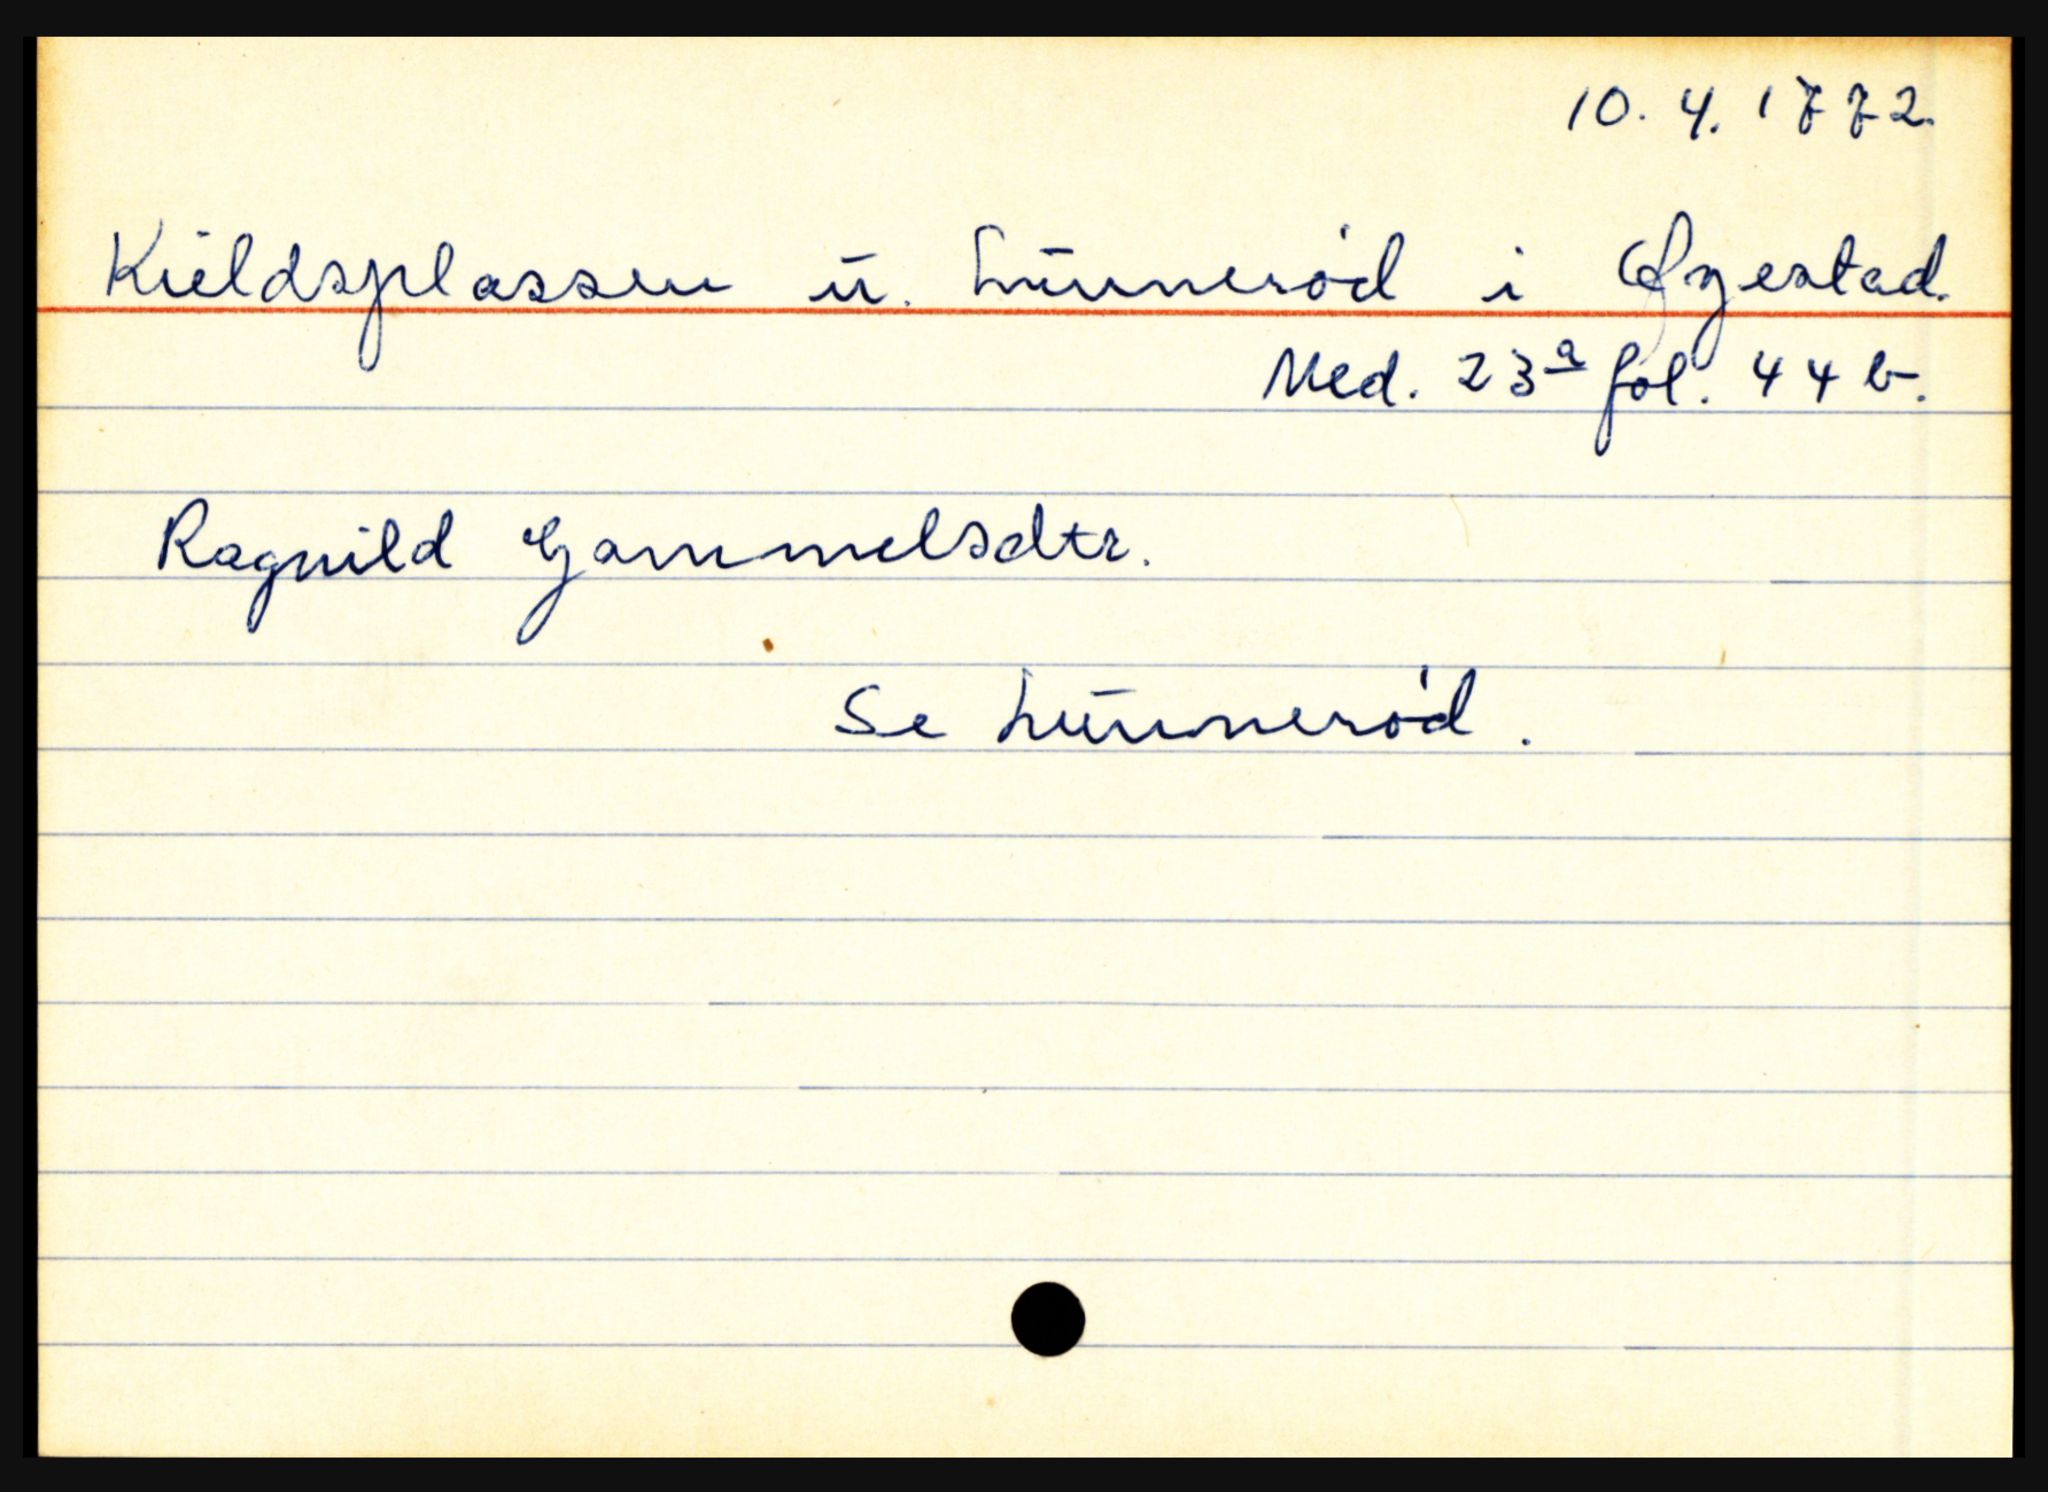 10.4.1772.
Kieldsplassen u. Lunnerød i Øyestad.
Ned. 23a fol. 44 b.
Ragnild Gammelsdtr.
Se Lunnerød.